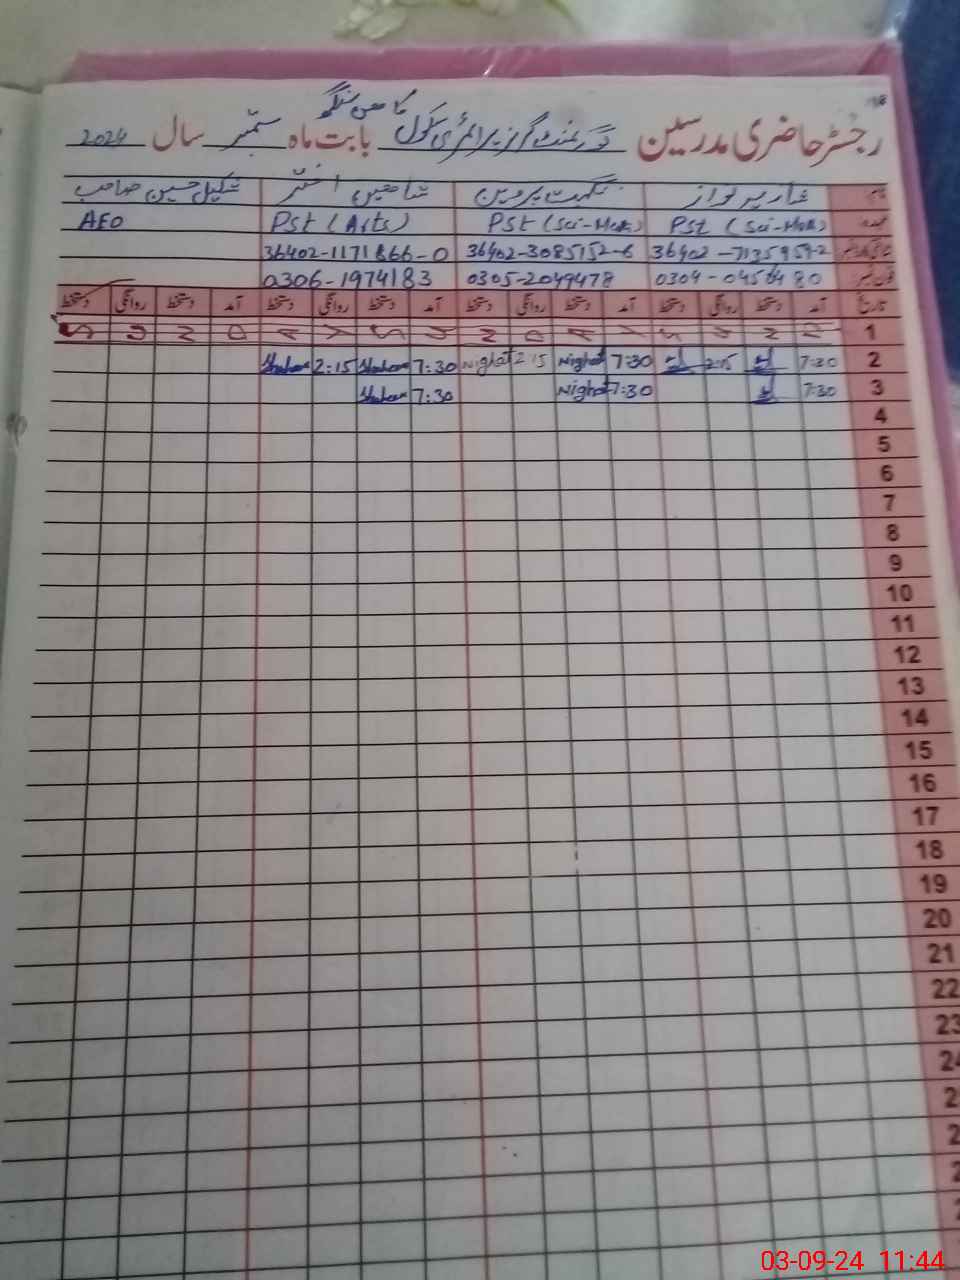 رجسٹر حاضری مدرسین گورنمنٹ گرلز پرائمری سکول بابت ماہ ستمبر سال 2024
نام نگہت پروین شاھین اختر شکیل حسین صاحب
عہدہ Pst (Sci-Math) Pst (Sci-Math) Pst (Arts) AEO
36402-7135959-2 36402-3085152-6 36402-1171866-0
فون نمبر 0304-0456480 0305-2049478 0306-1974183
تاریخ آمد دستخط روانگی دستخط آمد دستخط روانگی دستخط آمد دستخط روانگی دستخط آمد دستخط روانگی دستخط
1 S U N D A Y S U N D A Y S U N D A Y
2 7:30 2:15 7:30 Nighat 2:15 Nighat 7:30 Shaheen 2:15 Shaheen
3 7:30 7:30 Nighat 7:30 Shaheen
4
5
6
7
8
9
10
11
12
13
14
15
16
17
18
19
20
21
22
23
03-09-24 11:44